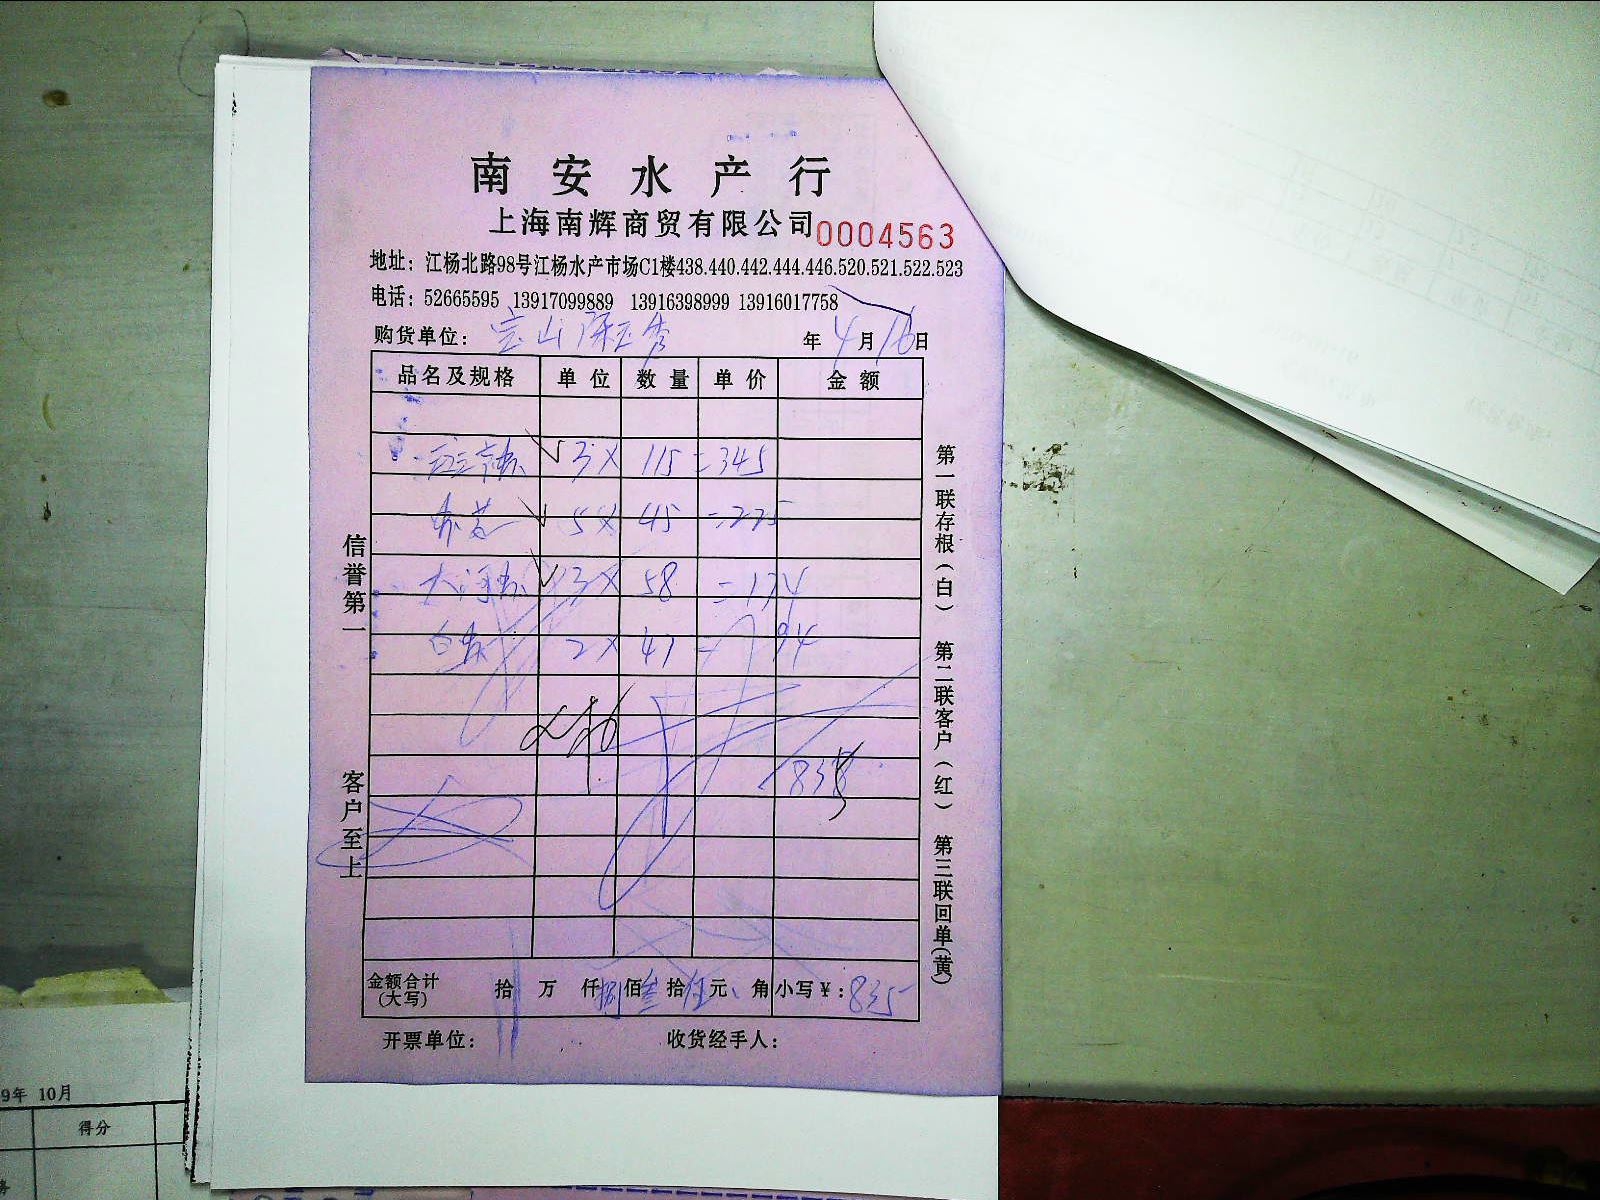 南安水产行
上海南辉商贸有限公司 0004563
地址：江杨北路98号江杨水产市场C1楼438.440.442.444.446.520.521.522.523
电话：52665595 13917099889 13916398999 13916017758
购货单位：宝山 年4月16日
品名及规格 单位 数量 单价 金额
3× 115=345
5× 45=225
3× 58=174
2× 47=94
835
金额合计(大写) 拾 万 仟捌佰叁拾伍元 角 小写￥：835
开票单位： 收货经手人：
信誉第一
客户至上
第一联存根(白) 第二联客户(红) 第三联回单(黄)
9年 10月
得分